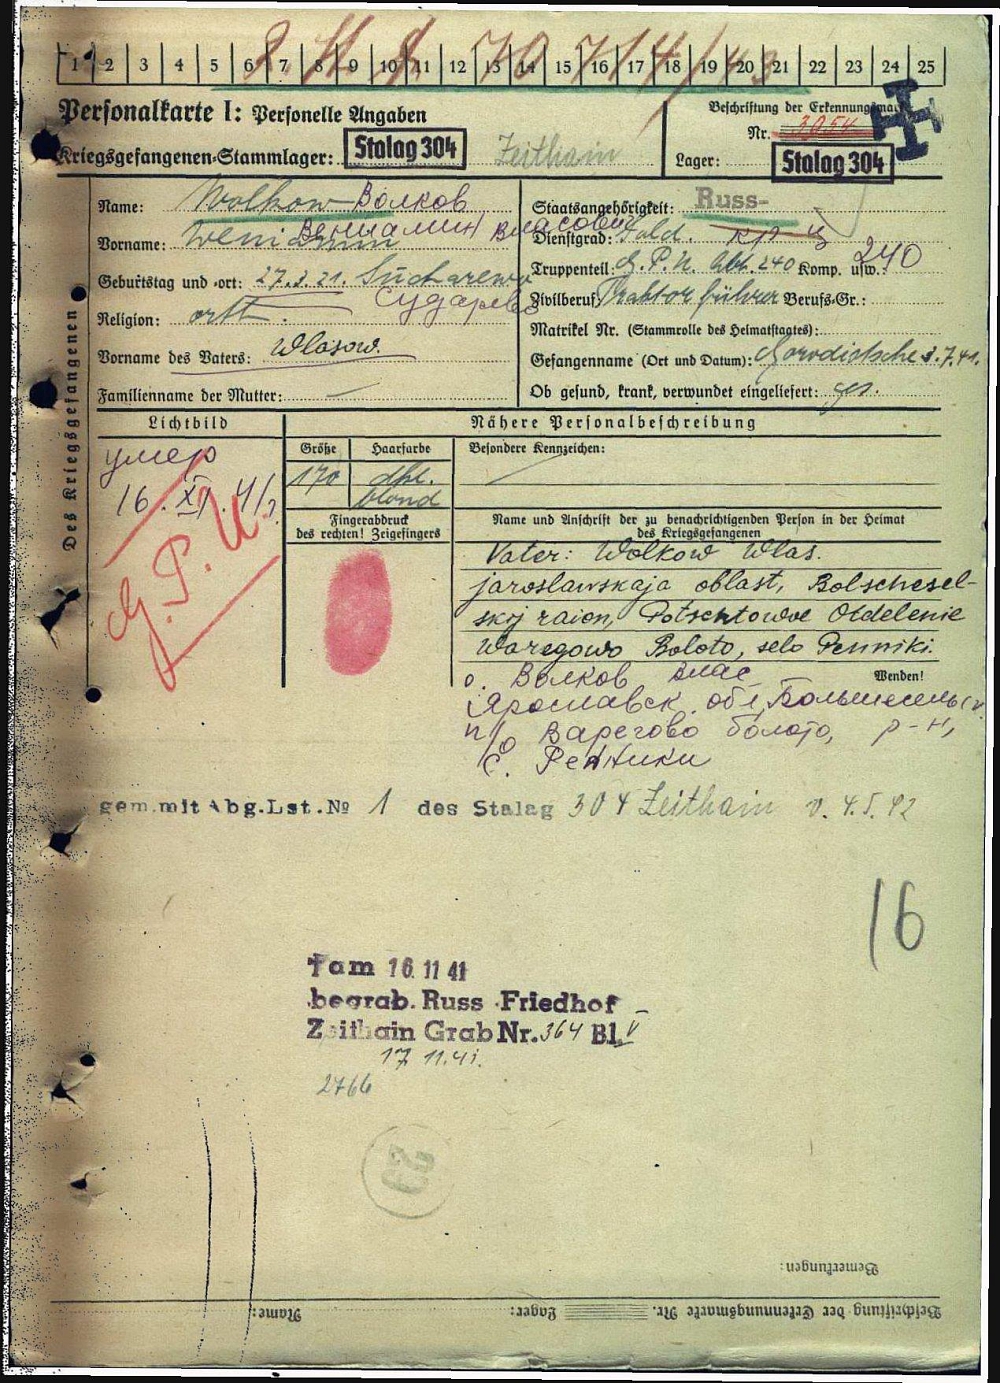 1 2 3 4 5 6 7 8 9 10 11 12 13 14 15 16 17 18 19 20 21 22 23 24 25
Personalkarte I: Personelle Angaben
Kriegsgefangenen-Stammlager: Stalag 304 Zeithain
Beschriftung der Erkennungsmarke
Nr. 3054
Lager: Stalag 304
Des Kriegsgefangenen
Name: Wolkow Волков
Vorname: Weniamin Вениамин Власович
Geburtstag und -ort: 27.3.21. Sucharewo
Сударево
Religion: orth.
Vorname des Vaters: Wlasow.
Familienname der Mutter: —
Staatsangehörigkeit: Russ-
Dienstgrad: Sold. кр-ц
Truppenteil: G.P.U. Abt. 240 Komp. usw.: 240
Zivilberuf: Traktorführer Berufs-Gr.:
Matrikel Nr. (Stammrolle des Heimatstaates):
Gefangenname (Ort und Datum): Gorodistsche 3.7.41.
Ob gesund, krank, verwundet eingeliefert: ges.
Lichtbild
умер
16.XI.41г
G.P.U.
Nähere Personalbeschreibung
Größe Haarfarbe Besondere Kennzeichen:
170 dkl. blond
Fingerabdruck
des rechten! Zeigefingers
Name und Anschrift der zu benachrichtigenden Person in der Heimat
des Kriegsgefangenen
Vater: Wolkow Wlas.
jaroslawskaja oblast, Bolschesel-
skij raion, Potschtowoe Otdelenie
Waregowo Boloto, selo Penniki.
Wenden!
о. Волков Влас
Ярославск. обл, Большесельск.
п/о Варегово болото, р-н,
с. Ренники
gem.mit Abg.Lst.№ 1 des Stalag 304 Zeithain v. 4.5.42
16
† am 16 11 41
begrab. Russ Friedhof
Zeithain Grab Nr. 364 Bl. V
17 11.41.
2766
Bemerkungen:
Beschriftung der Erkennungsmarke Nr. Lager: Name: